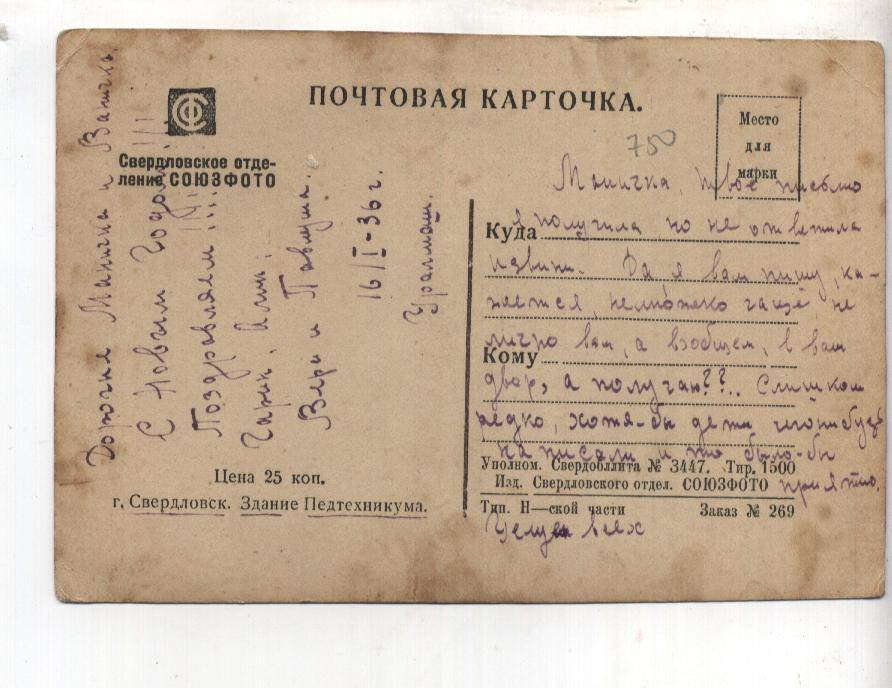 ПОЧТОВАЯ КАРТОЧКА.
Свердловское отде-
ление СОЮЗФОТО
Место
для
марки
750
Дорогие Маничка и Ваничка.
С Новым Годом!!!
Поздравляем!!!
Гарик, Алик.
Вера и Павлуша.
16/I-36 г.
Уралмаш.
Цена 25 коп.
г. Свердловск. Здание Педтехникума.
Маничка, твое письмо
я получила но не ответила
Куда
извини. Да я вам пишу, ка-
жется, немножко чаще, не
лично вам, а вообщем, в ваш
Кому
двор, а получаю??.. Слишком
редко, хотя-бы дети чегонибудь
написали и то было-бы
приятно.
Целуем всех
Уполном. Свердоблита № 3447. Тир. 1500
Изд. Свердловского отдел. СОЮЗФОТО
Тип. Н—ской части Заказ № 269